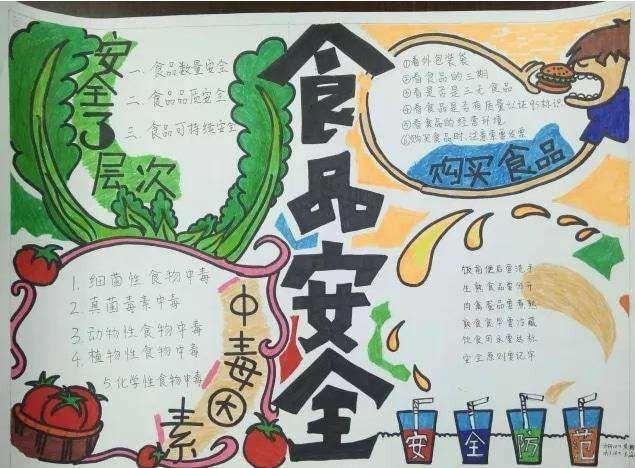 食品安全
安全3层次
一、食品数量安全
二、食品品质安全
三、食品可持续安全
①看外包装袋
②看食品的三期
③看是否是三无食品
④看食品是否有质量认证QS标识
⑤看食品的经营环境
⑥购买食品时,注意索要发票
购买食品
1. 细菌性食物中毒
2. 真菌毒素中毒
3. 动物性食物中毒
4. 植物性食物中毒
5. 化学性食物中毒
中毒因素
饭前便后要洗手
生熟食品要分开
肉禽蛋品要煮熟
熟食食品要冷藏
饮食用水要达标
安全原则要记牢
安全防范